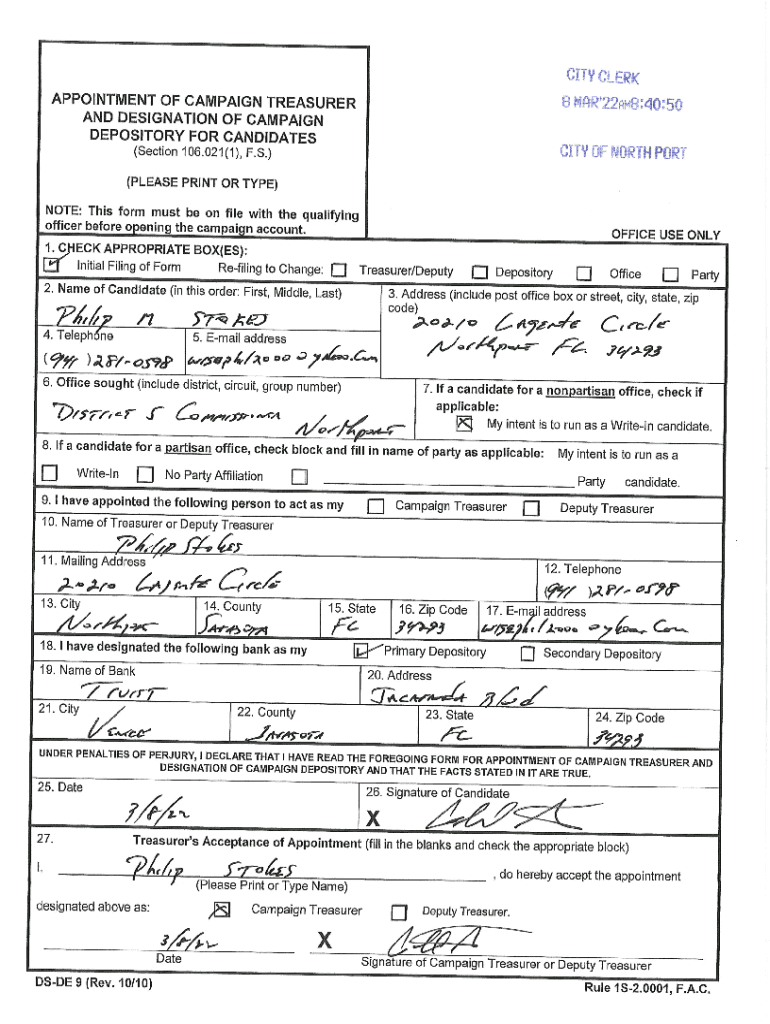 CITY CLERK
8 MAR'22AM8:40:50
CITY OF NORTH PORT
APPOINTMENT OF CAMPAIGN TREASURER
AND DESIGNATION OF CAMPAIGN
DEPOSITORY FOR CANDIDATES
(Section 106.021(1), F.S.)
(PLEASE PRINT OR TYPE)
NOTE: This form must be on file with the qualifying
officer before opening the campaign account.
OFFICE USE ONLY
1. CHECK APPROPRIATE BOX(ES):
Initial Filing of Form Re-filing to Change: Treasurer/Deputy Depository Office Party
2. Name of Candidate (in this order: First, Middle, Last)
Philip M STOKES
3. Address (include post office box or street, city, state, zip
code)
20210 Lagente Circle
Northport FL 34293
4. Telephone
(941 )281-0598
5. E-mail address
wisephil2000@yahoo.com
6. Office sought (include district, circuit, group number)
District 5 Commissioner
Northport
7. If a candidate for a nonpartisan office, check if
applicable:
My intent is to run as a Write-in candidate.
8. If a candidate for a partisan office, check block and fill in name of party as applicable: My intent is to run as a
Write-In No Party Affiliation Party candidate.
9. I have appointed the following person to act as my Campaign Treasurer Deputy Treasurer
10. Name of Treasurer or Deputy Treasurer
Philip Stokes
11. Mailing Address
20210 Lagente Circle
12. Telephone
(941 )281-0598
13. City
Northport
14. County
Sarasota
15. State
FL
16. Zip Code
34293
17. E-mail address
wisephil2000@yahoo.com
18. I have designated the following bank as my Primary Depository Secondary Depository
19. Name of Bank
Truist
20. Address
Jacaranda Blvd
21. City
Venice
22. County
Sarasota
23. State
FL
24. Zip Code
34293
UNDER PENALTIES OF PERJURY, I DECLARE THAT I HAVE READ THE FOREGOING FORM FOR APPOINTMENT OF CAMPAIGN TREASURER AND
DESIGNATION OF CAMPAIGN DEPOSITORY AND THAT THE FACTS STATED IN IT ARE TRUE.
25. Date
3/8/22
26. Signature of Candidate
X
27. Treasurer's Acceptance of Appointment (fill in the blanks and check the appropriate block)
I, Philip STOKES , do hereby accept the appointment
(Please Print or Type Name)
designated above as: Campaign Treasurer Deputy Treasurer.
3/8/22 X
Date Signature of Campaign Treasurer or Deputy Treasurer
DS-DE 9 (Rev. 10/10) Rule 1S-2.0001, F.A.C.